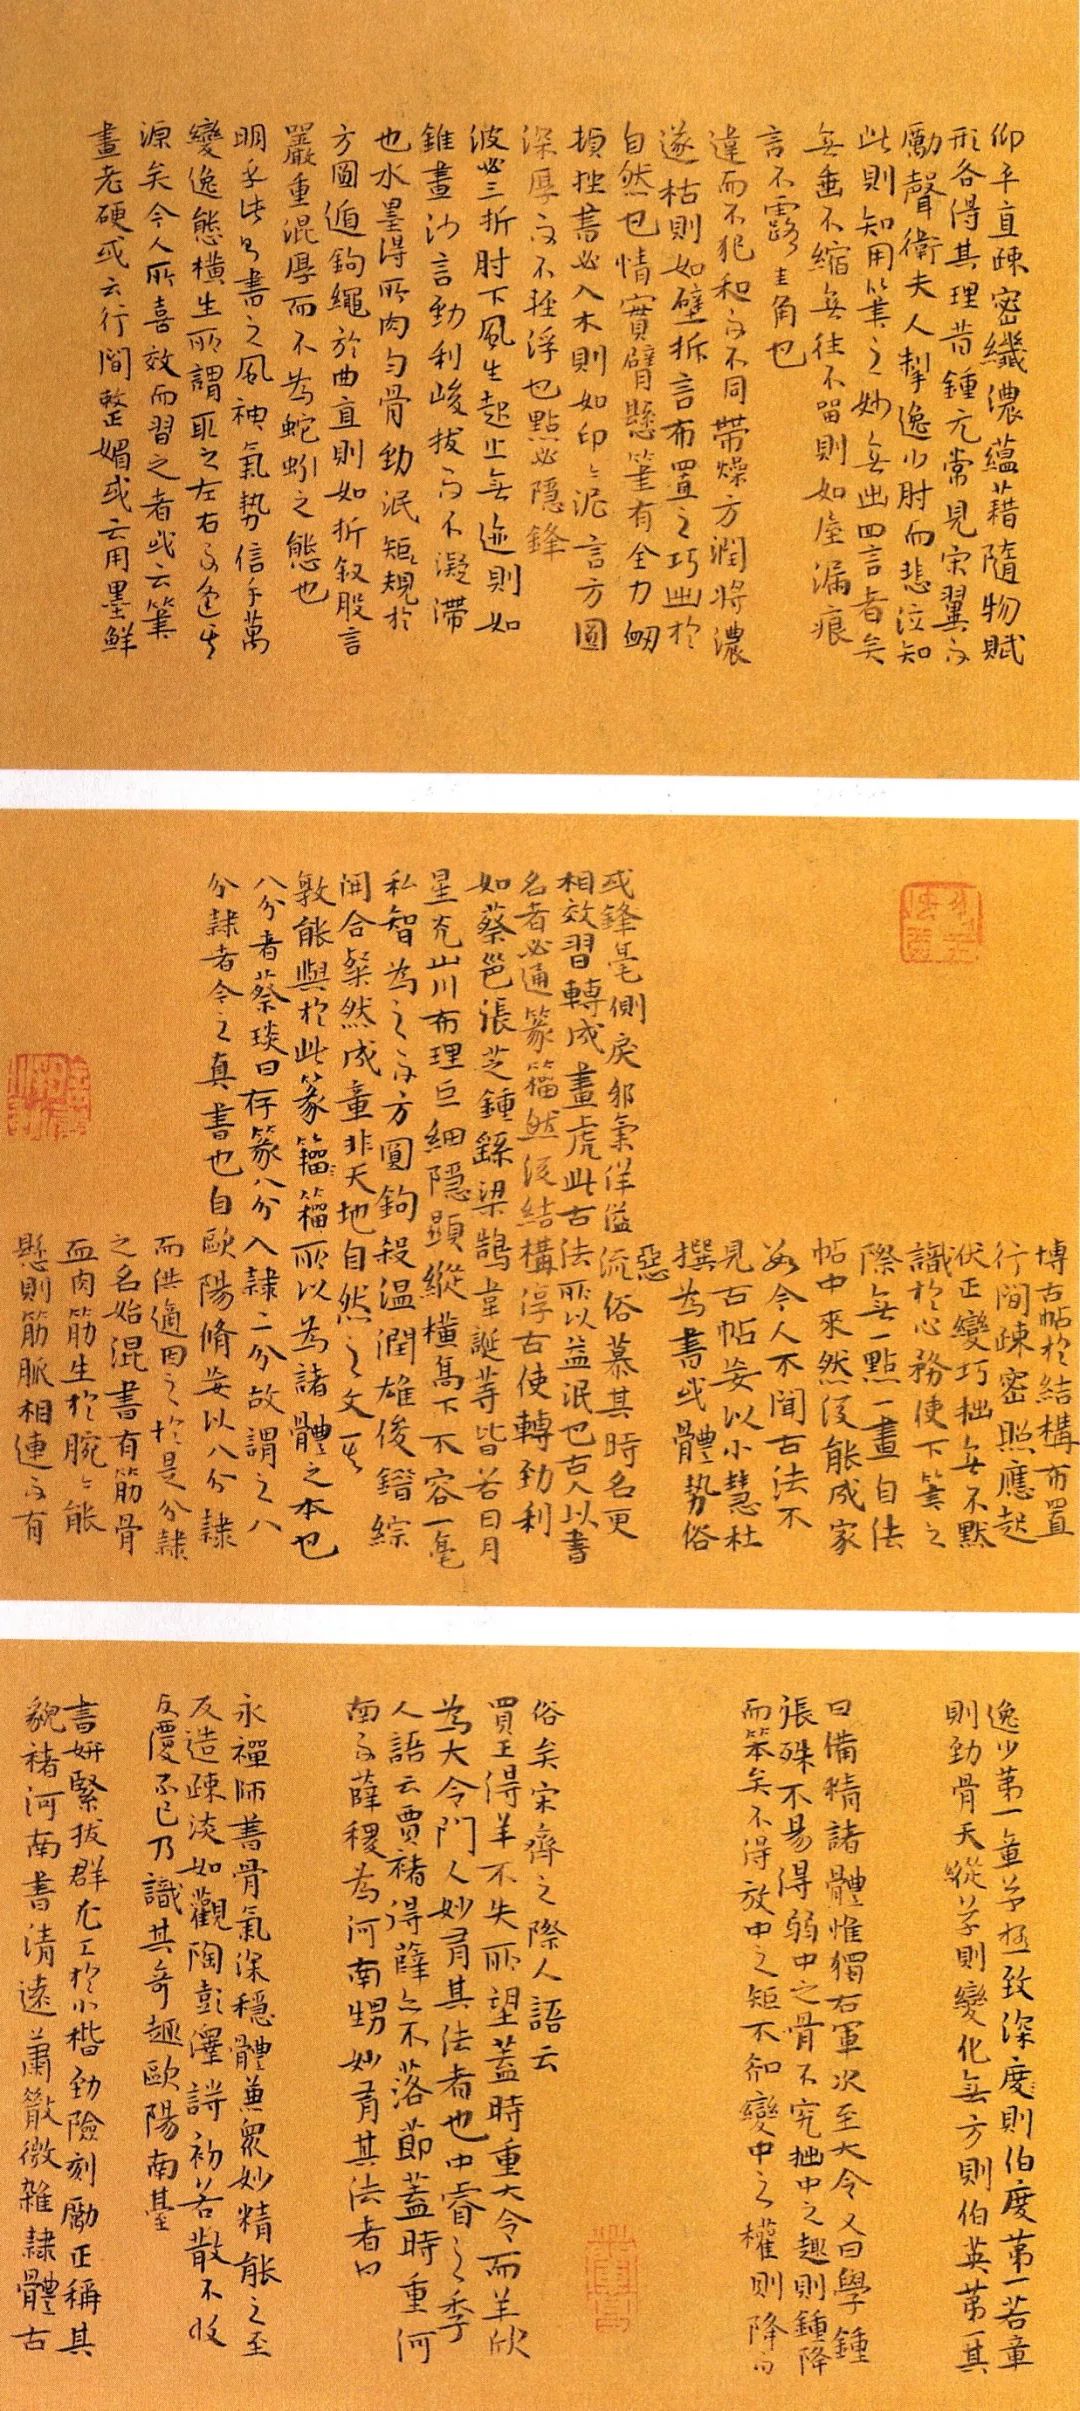 仰平直疎密纖濃蘊藉隨物賦
形各得其理昔鍾元常見宋翼而
勵聲衛夫人掣逸少肘而悲泣知
此則知用筆之妙無出四言者矣
無垂不縮無往不留則如屋漏痕
言不露圭角也
違而不犯和而不同帶燥方潤將濃
遂枯則如壁拆言布置之巧出於
自然也情實臂懸筆有全力衂
頓挫書必入木則如印印泥言方圓
深厚而不輕浮也點必隱鋒
波必三折肘下風生起止無迹則如
錐畫沙言勁利峻拔而不凝滯
也水墨得所肉勻骨勁泯矩規於
方圓遁鉤繩於曲直則如折釵股言
嚴重混厚而不為蛇蚓之態也
明乎此則書之風神氣勢信手萬
變逸態橫生所謂取之左右而逢其
源矣今人所喜效而習之者或云筆
畫老硬或云行間整媚或云用墨鮮
博古帖於結構布置
行間疎密照應起
伏正變巧拙無不默
識於心務使下筆之
際無一點一畫自法
帖中來然後能成家
若今人不聞古法不
見古帖妄以小慧杜
撰為書或體勢俗
惡
或鋒毫側戾邪氣洋溢流俗慕其時名更
相效習轉成畫虎此古法所以益泯也古人以書
名者必通篆籀然後結構淳古使轉勁利
如蔡邕張芝鍾繇梁鵠韋誕等皆若日月
星充山川布理巨細隱顯縱橫高下不容一毫
私智為之而方圓鉤殺溫潤雄俊錯綜
開合粲然成章非天地自然之文其
孰能與於此篆籀籀所以為諸體之本也
八分者蔡琰曰存篆八分入隸二分故謂之八
分隸者今之真書也自歐陽脩妄以八分隸
而洪適因之於是分隸
之名始混書有筋骨
血肉筋生於腕腕能
懸則筋脈相連而有
逸少第一章草極致深度則伯度第一若章
則勁骨天縱草則變化無方則伯英第一其
曰備精諸體惟獨右軍次至大令又曰學鍾
張殊不易得弱中之骨不究拙中之趣則鍾降
而笨矣不得放中之矩不知變中之權則降而
俗矣宋齊之際人語云
買王得羊不失所望蓋時重大令而羊欣
為大令門人妙有其法者也中睿之季
人語云買褚得薛亦不落節蓋時重河
南而薛稷為河南甥妙有其法者曰
永禪師書骨氣深穩體兼眾妙精能之至
反造疎淡如觀陶彭澤詩初若散不收
反覆不已乃識其奇趣歐陽南臺
書妍緊拔群尤工於小楷勁險刻勵正稱其
貌褚河南書清遠蕭散微雜隸體古